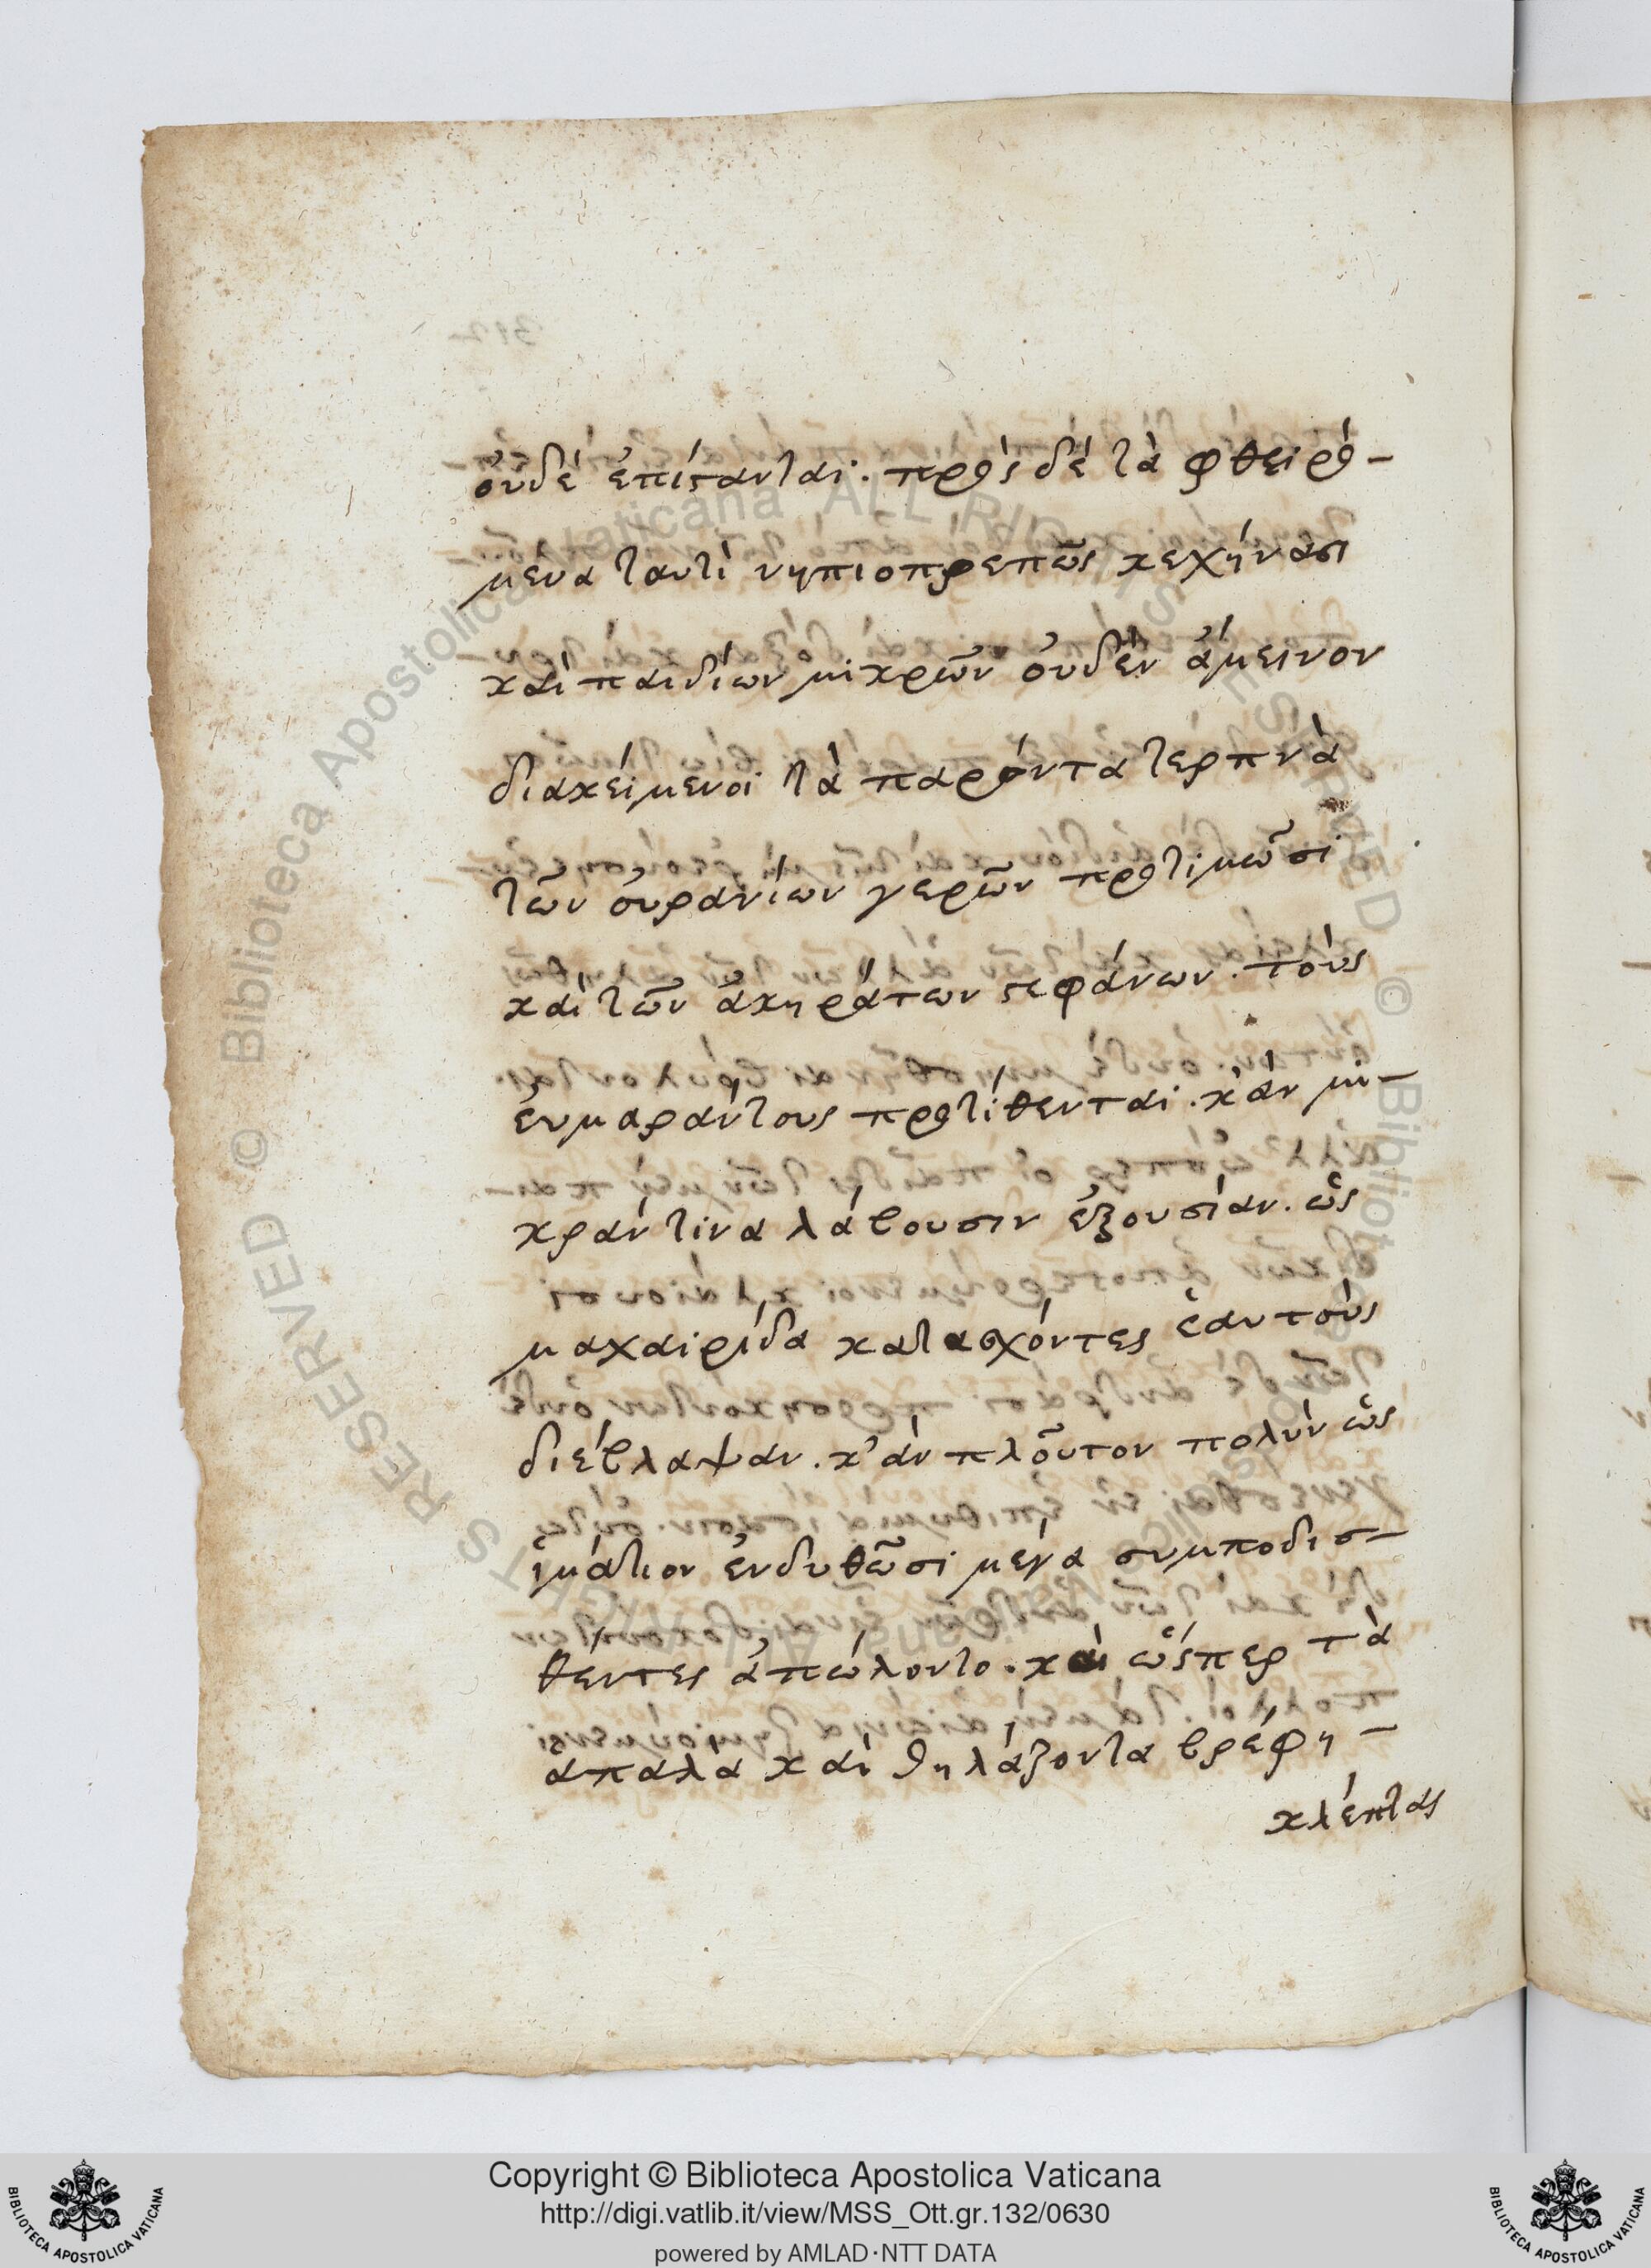 οὐδὲ ἐπίστανται. πρὸς δὲ τὰ φθειρό-
μενα ταυτὶ νηπιοπρεπῶς κεχήνασι
καὶ παιδίων μικρῶν οὐδὲν ἄμεινον
διακείμενοι τὰ παρόντα τερπνὰ
τῶν οὐρανίων γερῶν προτιμῶσι
καὶ τῶν ἀκηράτων στεφάνων. τοὺς
εὐμαράντους προτίθενται. κἂν μι-
κράν τινα λάβουσιν ἐξουσίαν. ὡς
μαχαιρίδα κατασχόντες ἑαυτοὺς
διέβλαψαν. κ'ἂν πλοῦτον πολὺν ὡς
ἱμάτιον ἐνδυθῶσι μέγα συμποδισ-
θέντες ἀπώλοντο. καὶ ὥσπερ τὰ
απαλὰ καὶ θηλάζοντα βρέφη -
κλέπτας
Copyright © Biblioteca Apostolica Vaticana
http://digi.vatlib.it/view/MSS_Ott.gr.132/0630
powered by AMLAD·NTT DATA
BIBLIOTECA APOSTOLICA VATICANA
BIBLIOTECA APOSTOLICA VATICANA